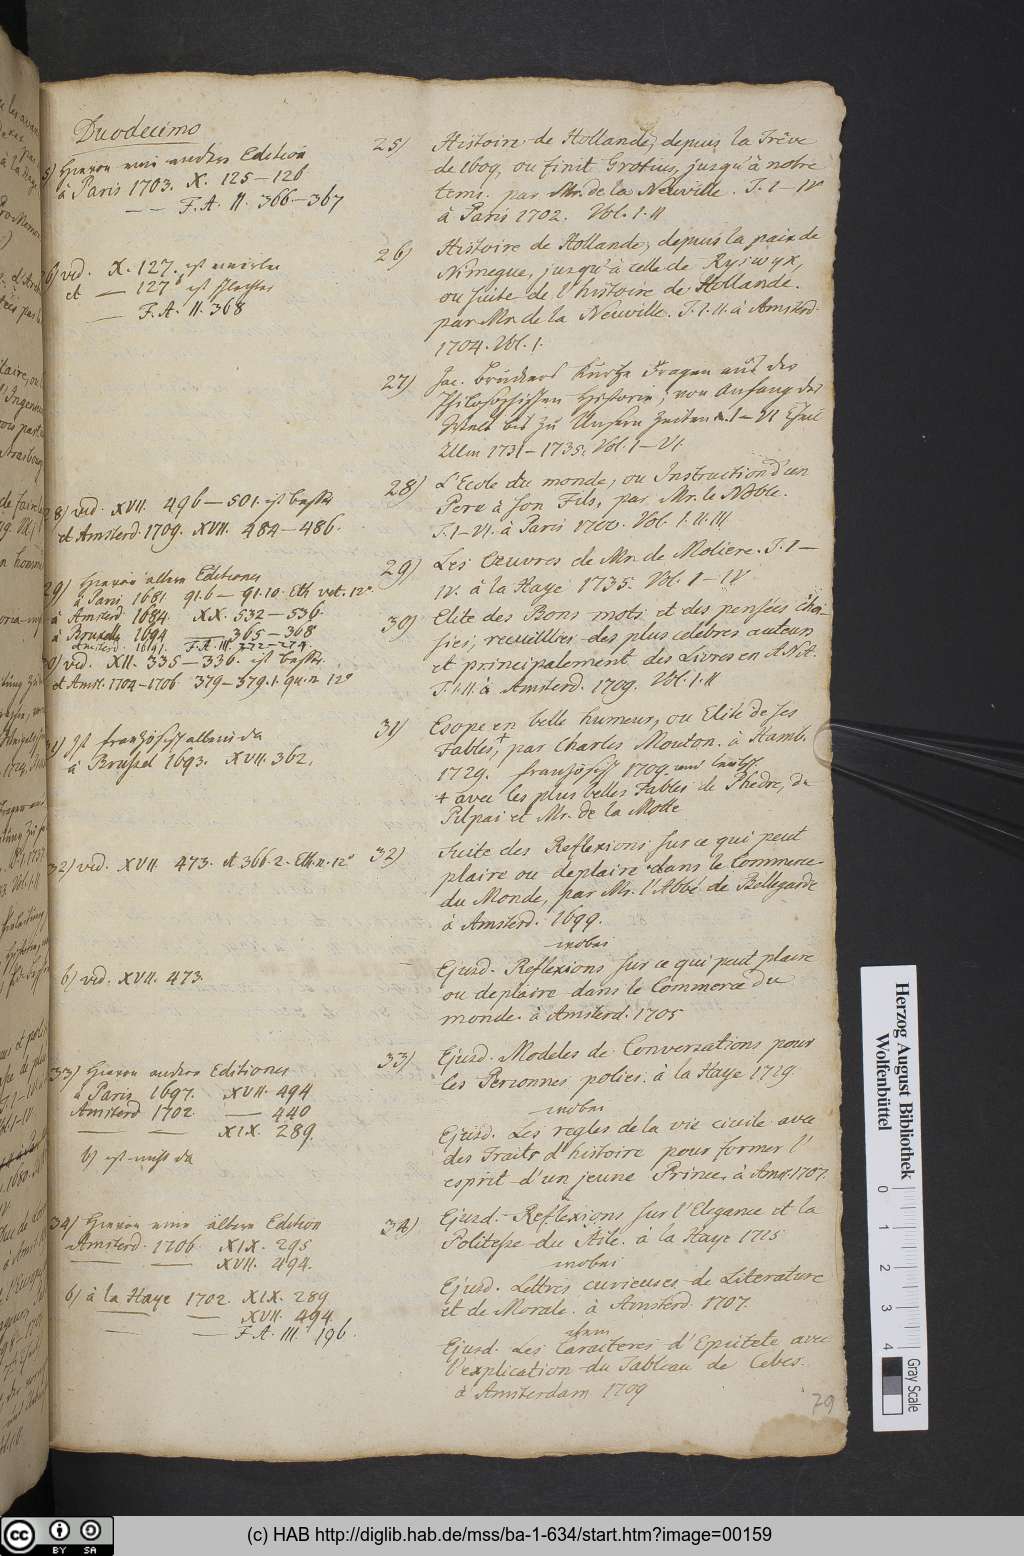 Duodecimo
5) Hievon eine andre Edition
à Paris 1703. X. 125–126
— — F.A. II. 366–367
26) vid. X. 127. ist
et — 127
— F.A. II. 368
28) vid. XVII. 496–501. ist besser
et Amsterd. 1709. XVII. 484–486.
29) Hievon ältere Editiones
à Paris 1681. 91.6–91.10. Eth. vet. 12°
à Amsterd. 1684. XX. 532–536.
à Bruxelles 1694 — 365–368
Amsterd. 1691. F.A. III. 272–274.
30) vid. XII. 335–336. ist besser
et Amst. 1704–1706 379–379.1. Qu. n. 12°
31) Ist französisch allein da
à Brussel 1693. XVII. 362.
32) vid. XVII. 473. et 366.2. Eth. n. 12°
b) vid. XVII. 473.
33) Hievon andere Editiones
à Paris 1697. XVII. 494
Amsterd. 1702. — 440
— — XIX. 289.
b) ist nicht da
34) Hievon eine ältere Edition
Amsterd. 1706. XIX. 295
— — XVII. 494.
b) à la Haye 1702. XIX. 289
— — XVII. 494
— — F.A. III. 196.
25) Histoire de Hollande, depuis la Trêve
de 1609, ou finit Grotius, jusqu'à notre
tems, par Mr. de la Neuville. T. I–IV
à Paris 1702. Vol. I. II
26) Histoire de Hollande, depuis la paix de
Nimegue, jusqu'à celle de Ryswyk,
ou suite de l'histoire de Hollande.
par Mr. de la Neuville. T. I. II. à Amsterd.
1704. Vol. I.
27) Jac. Bruckers Kurtze Fragen aus der
Philosophischen Historie, von Anfang der
Welt bis zu Unsern Zeiten. I–VI Theil
Ulm 1731–1735. Vol. I–VI.
28) L'Ecole du monde, ou Instruction d'un
Pere à son Fils, par Mr. le Noble.
T. I–VI. à Paris 1700. Vol. I. II. III.
29) Les Œuvres de Mr. de Moliere. T. I–
IV. à la Haye 1735. Vol. I–IV
30) Elite des Bons mots et des pensées choi-
sies, recueillies des plus celebres auteurs
et principalement des Livres en ANA.
T. I. II. à Amsterd. 1709. Vol. I. II
31) Esope en belle humeur, ou Elite de ses
Fables, + par Charles Mouton. à Hamb.
1729. französisch 1709. und teutsch.
+ avec les plus belles Fables de Phedre, de
Pilpai et Mr. de la Motte
32) Suite des Reflexions sur ce qui peut
plaire ou deplaire dans le Commerce
du Monde, par Mr. l'Abbé de Bellegarde
à Amsterd. 1699.
wobei
Ejusd. Reflexions sur ce qui peut plaire
ou deplaire dans le Commerce du
monde. à Amsterd. 1705
33) Ejusd. Modeles de Conversations pour
les Personnes polies. à la Haye 1729.
wobei
Ejusd. Les regles de la vie civile avec
des Traits d'histoire pour former l'
esprit d'un jeune Prince, à Amst. 1707.
34) Ejusd. Reflexions sur l'Elegance et la
Politesse du Stile. à la Haye 1715
wobei
Ejusd. Lettres curieuses de Literature
et de Morale. à Amsterd. 1707.
Ejusd. Les Caracteres d'Epictete avec
l'explication du Tableau de Cebes.
à Amsterdam 1709
79
Herzog August Bibliothek
Wolfenbüttel
0 1 2 3 4
Gray Scale
cc BY SA
(c) HAB http://diglib.hab.de/mss/ba-1-634/start.htm?image=00159